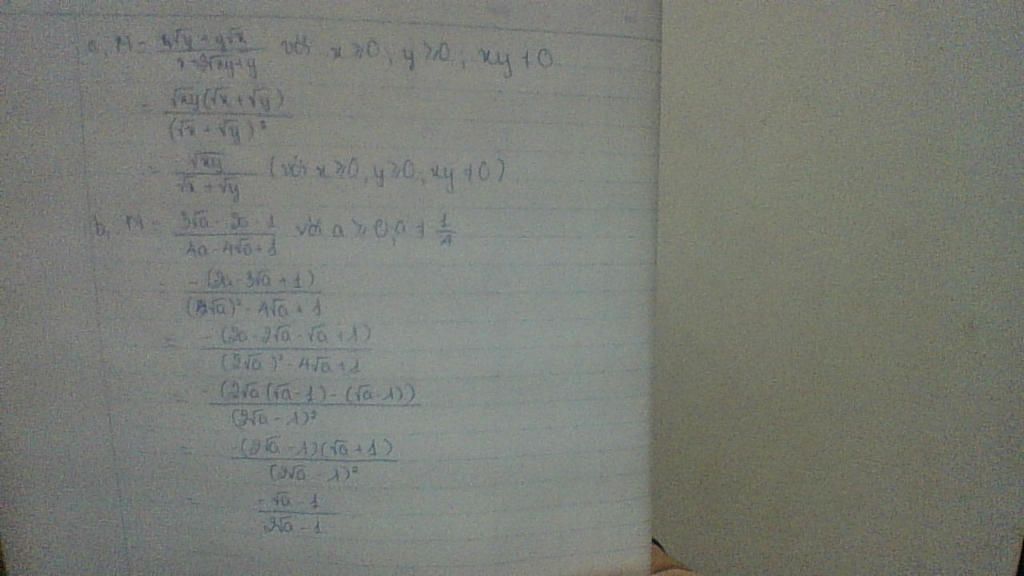 a, M = \frac{x√y + y√x}{x + 2√xy + y} với x ≥ 0, y ≥ 0, xy ≠ 0.
= \frac{√xy(√x + √y)}{(√x + √y)²}
= \frac{√xy}{√x + √y} (với x ≥ 0, y ≥ 0, xy ≠ 0)
b, M = \frac{3√a - 2a - 1}{4a - 4√a + 1} với a ≥ 0, a ≠ \frac{1}{4}
= \frac{-(2a - 3√a + 1)}{(2√a)² - 4√a + 1}
= \frac{-(2a - 2√a - √a + 1)}{(2√a)² - 4√a + 1}
= \frac{-(2√a(√a - 1) - (√a - 1))}{(2√a - 1)²}
= \frac{-(2√a - 1)(√a + 1)}{(2√a - 1)²}
= \frac{-√a - 1}{2√a - 1}